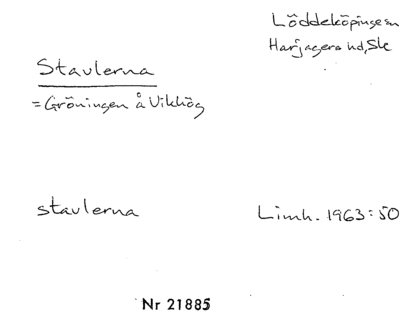 Löddeköpinge sn
Harjagers hd, Sk
Stavlerna
= Gröningen å Vikhög
stavlerna
Limh. 1963:50
Nr 21885